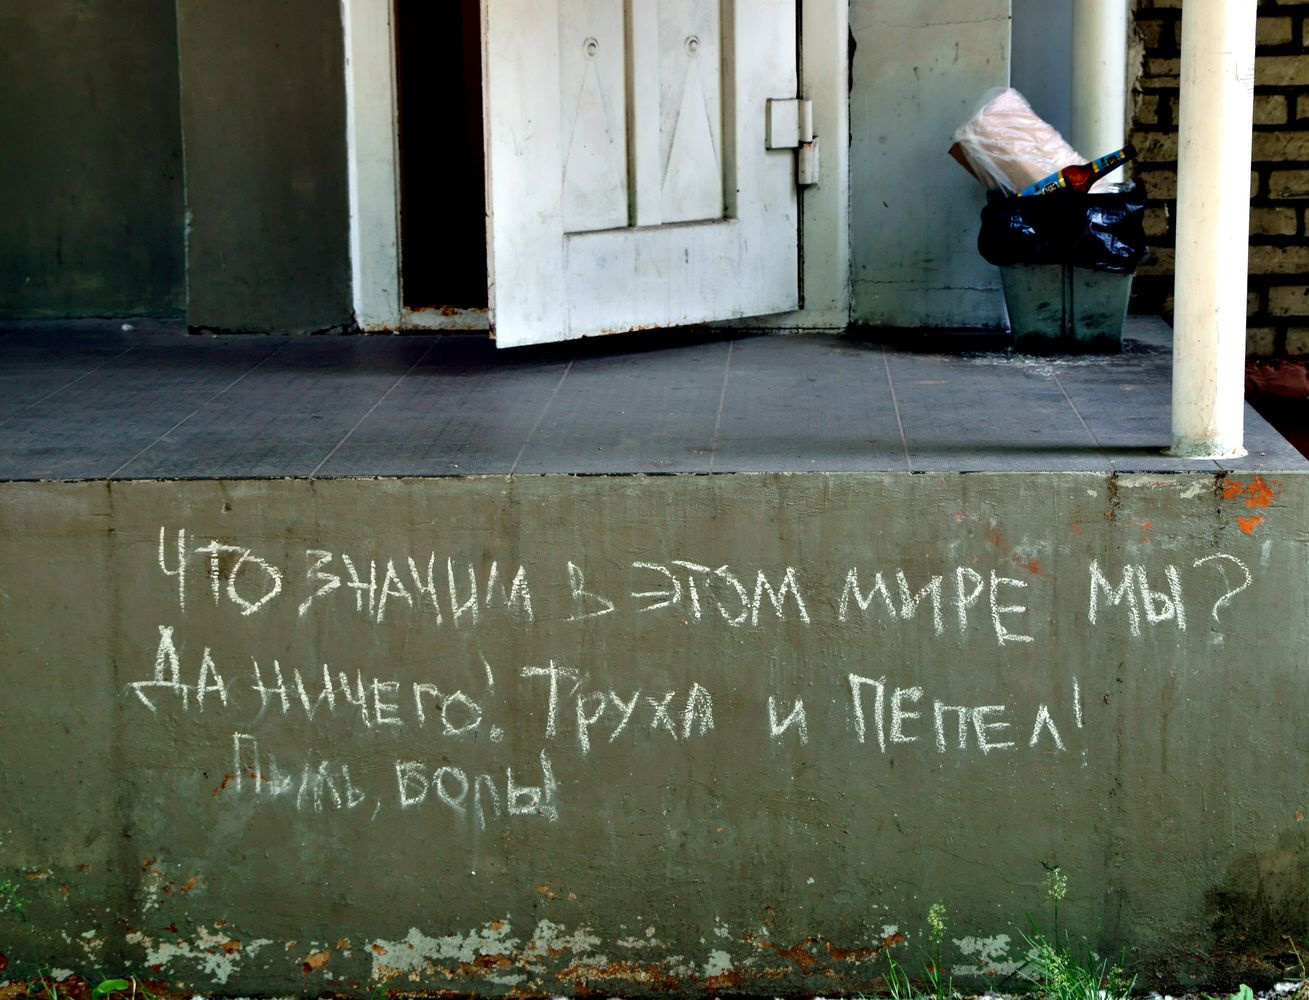 Что значим в этом мире мы?
Да ничего! Труха и пепел!
Пыль, боль!